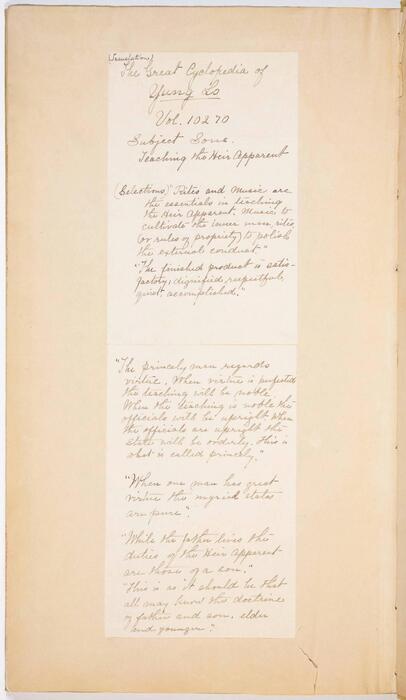 (Translation)
The Great Cyclopedia of
Yung Lo
Vol. 10270
Subject Sons.
Teaching the Heir Apparent
(Selections) "Rites and Music are
the essentials in teaching
the Heir Apparent. Music to
cultivate the inner man, rites
(or rules of propriety) to polish
the external conduct."
"The finished product is satis-
factory, dignified, respectful,
quiet, accomplished."
"The princely man regards
virtue. When virtue is perfected
the teaching will be noble.
When the teaching is noble the
officials will be upright when
the officials are upright the
state will be orderly. This is
what is called princely."
"When one man has great
virtue the myriad states
are pure".
"While the father lives the
duties of the Heir Apparent
are those of a son."
"This is as it should be that
all may know the doctrine
of father and son, elder
and younger".